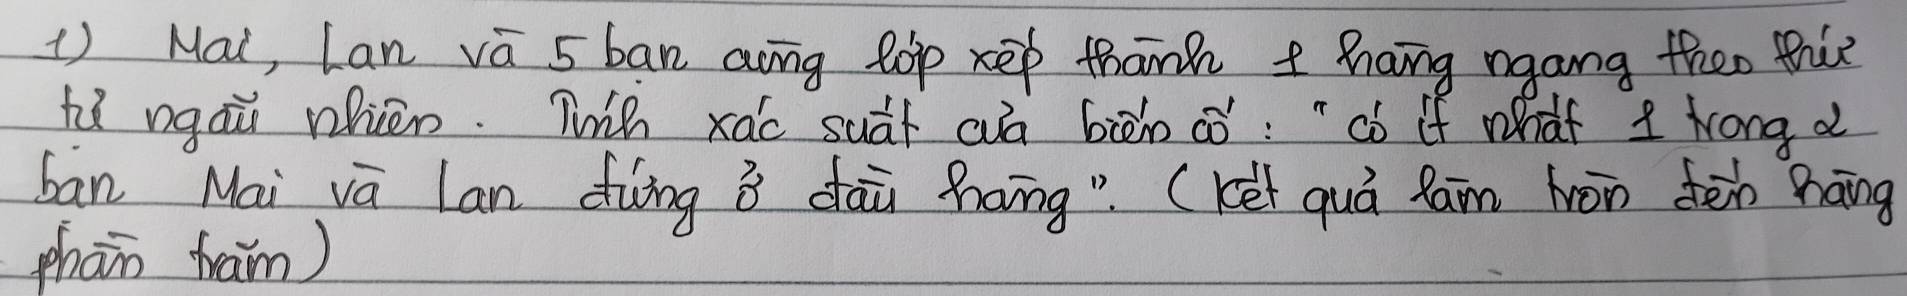 1) Mai, Lan và 5 bạn cùng lớp xếp thành 1 hàng ngang theo thứ
tự ngẫu nhiên. Tính xác suất của biến cố: "có ít nhất 1 trong 2
bạn Mai và Lan đứng ở đầu hàng". (Kết quả làm tròn đến hàng
phần trăm)